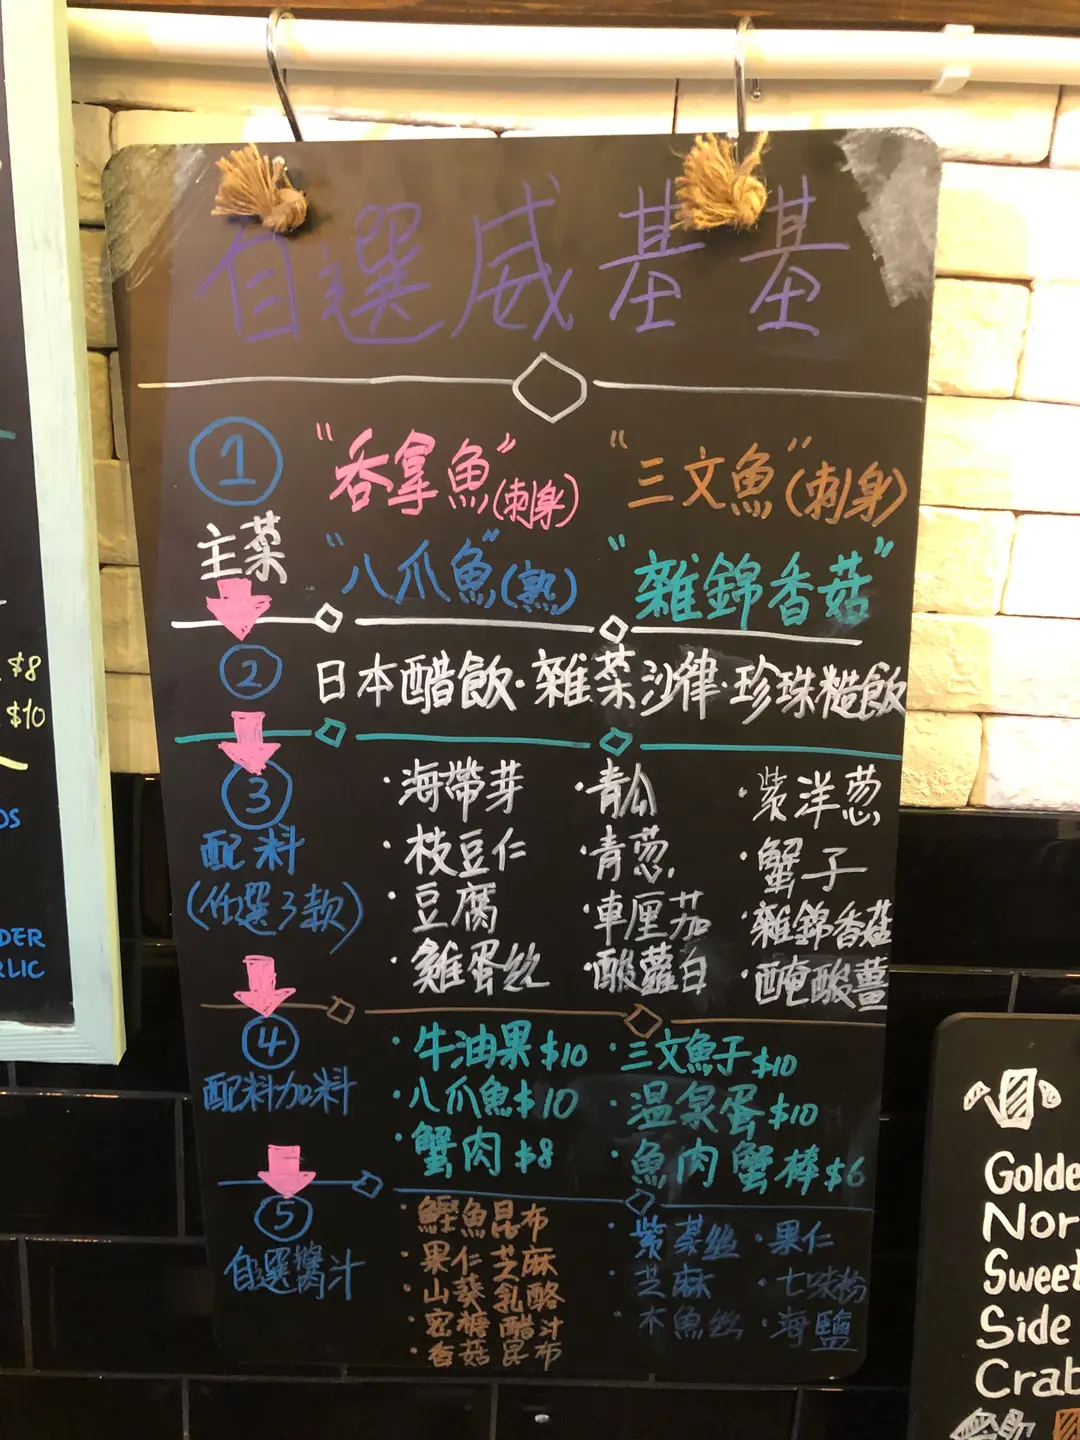 自選威基基
1 "吞拿魚"(刺身) "三文魚"(刺身)
主菜 "八爪魚"(熟) "雜錦香菇"
2 日本醋飯·雜菜沙律·珍珠糙飯
3 ·海帶芽 ·青瓜 ·紫洋葱
配料 ·枝豆仁 ·青葱 ·蟹子
(任選3款) ·豆腐 ·車厘茄 ·雜錦香菇
·雞蛋絲 ·酸蘿白 ·醃酸薑
4 ·牛油果$10 ·三文魚子$10
配料加料 ·八爪魚$10 ·溫泉蛋$10
·蟹肉$8 ·魚肉蟹棒$6
5 ·鰹魚昆布 ·紫菜絲 ·果仁
自選醬汁 ·果仁芝麻 ·芝麻 ·七味粉
·山葵乳酪 ·木魚絲 ·海鹽
·蜜糖醋汁
·香菇昆布
$8
$10
DS
DER
RLIC
Golde
Nor
Sweet
Side
Crab